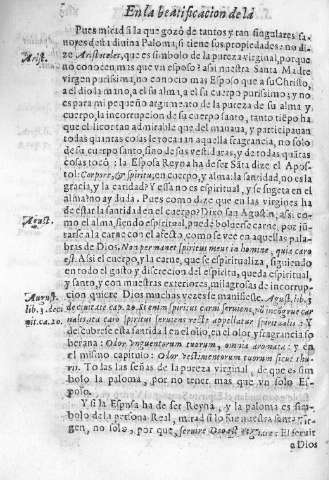 En la beatificacion de la
Pues mirad si la que gozò de tantos y tan singulares fa-
uores desta diuina Paloma, si tiene sus propiedades: no di-
Arist.
ze Aristoteles, que es simbolo de la pureza virginal, porque
no conoce mas que vn esposo? asi nuestra Santa Madre
virgen purissima, no conocio mas Esposo que a su Christo,
a el dio la mano, a el su alma, a el su cuerpo purissimo: y no
es para mi pequeño argumento de la pureza de su alma y
cuerpo, la incorrupcion de su cuerpo santo, tanto tiẽpo ha,
que el licor tan admirable que del manaua, y participauan
todas quantas cosas le tocauan aquella fragrancia, no solo
de su cuerpo santo, sino de sus vestiduras, y de todas quãtas
cosas tocò: la Esposa Reyna ha de ser Sãta dize el Apos-
tol: Corpore, & spiritu, en cuerpo, y alma: la santidad, no es la
gracia, y la caridad? Y essa no es espiritual, y se sugeta en el
alma? no ay duda. Pues como dize que en las virgines ha
August.
de estar la santidad en el cuerpo? Dixo san Agustin, asi co-
mo el alma, siendo espiritual, puede boluerse carne, por jũ-
tarse a la carne con el afecto, como se vee en aquellas pala-
bras de Dios, Non permanet spiritus meus in homine, quia caro
est. Asi el cuerpo, y la carne, que se espiritualiza, siguiendo
en todo el gusto y discrecion del espiritu, queda espiritual,
y santo, y con muestras exteriores, milagrosas de incorrup-
August.
lib. 3. de ci
uit. ca. 20.
cion quiere Dios muchas vezes se manifieste. August. lib. 3
de ciuitate cap. 20. Si enim spiritus carni seruiens, nõ incõgrue car
nalis, ita caro spiritui seruiens rectè appellatur spiritualis: Y
descubrese esta santidad en el olio, en el olor, y fragrancia so
berana: Odor vnguentorum tuorum, omnia aromata: y en
el mismo capitulo: Odor vestimentorum tuorum sicut thu-
ris. Todas las señas de la pureza virginal, de que es sim-
bolo la paloma, por no tener mas que vn solo Es-
poso.
Y si la Esposa ha de ser Reyna, y la paloma es sim-
bolo de la persona Real, mirad si lo fue nuestra santa vir-
gen, no solo, por que, seruire Deo est regnare: El seruir
a Dios